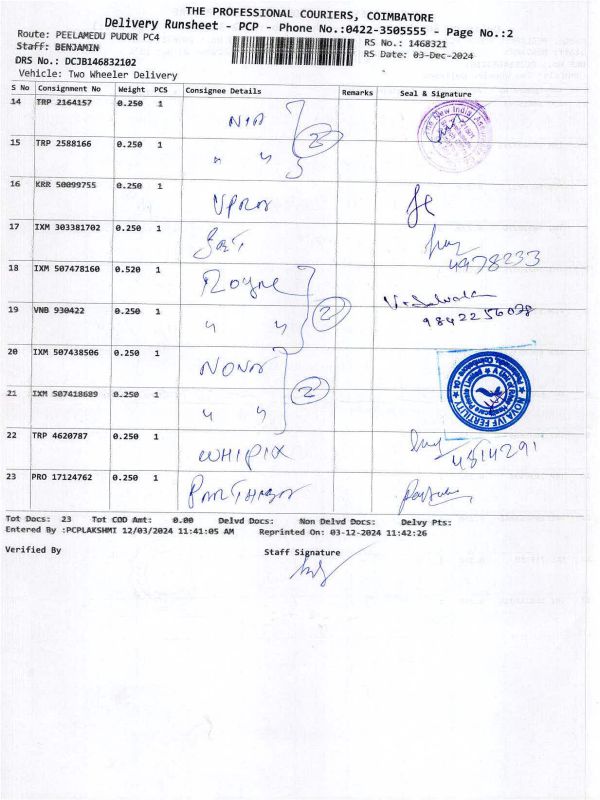 THE PROFESSIONAL COURIERS, COIMBATORE
Delivery Runsheet - PCP - Phone No.:0422-3505555 - Page No.:2
Route: PEELAMEDU PUDUR PC4
RS No.: 1468321
Staff: BENJAMIN
RS Date: 03-Dec-2024
DRS No.: DCJB146832102
Vehicle: Two Wheeler Delivery
S No Consignment No Weight PCS Consignee Details Remarks Seal & Signature
14 TRP 2164157 0.250 1 The New India
15 TRP 2588166 0.250 1 " " 2
16 KRR 50099755 0.250 1
17 IXM 303381702 0.250 1
18 IXM 507478160 0.520 1 Royne
19 VNB 930422 0.250 1 " " 2
20 IXM 507438506 0.250 1 NOVA
21 IXM 507418689 0.250 1 " " 2 NOVA IVF FERTILITY
22 TRP 4620787 0.250 1 WHIPIX
23 PRO 17124762 0.250 1
Tot Docs: 23 Tot COD Amt: 0.00 Delvd Docs: Non Delvd Docs: Delvy Pts:
Entered By :PCPLAKSHMI 12/03/2024 11:41:05 AM Reprinted On: 03-12-2024 11:42:26
Verified By Staff Signature